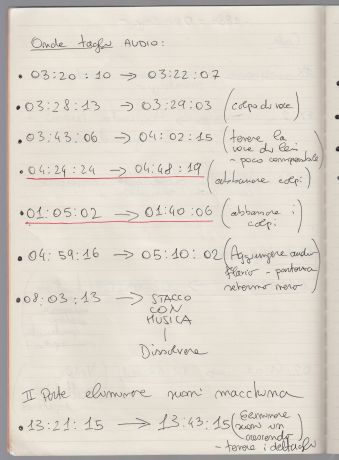 Onde tagli AUDIO:
• 03:20:10 → 03:22:07
• 03:28:13 → 03:29:03 (colpo di voce)
• 03:43:06 → 04:02:15 (tenere la
voce di lei
- poco comprensibile
• 04:24:24 → 04:48:19 (abbassare colpi)
• 01:05:02 → 01:40:06 (abbassare i
colpi)
• 04:59:16 → 05:10:02 (Aggiungere audio
Flavio -
nero)
• 08:03:13 → STACCO
CON
MUSICA
|
Dissolvere
II Parte eliminare suoni macchina
• 13:21:15 → 13:43:15 (Eliminare
suoni un
crescendo
- tenere i dettagli